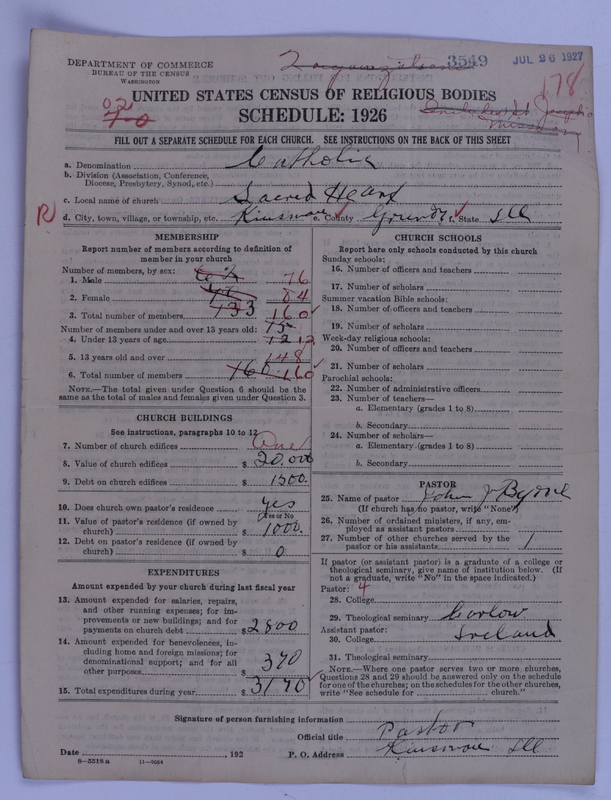 3549
JUL 26 1927
178
DEPARTMENT OF COMMERCE
BUREAU OF THE CENSUS
WASHINGTON
UNITED STATES CENSUS OF RELIGIOUS BODIES
SCHEDULE: 1926
FILL OUT A SEPARATE SCHEDULE FOR EACH CHURCH. SEE INSTRUCTIONS ON THE BACK OF THIS SHEET
a. Denomination Catholic
b. Division (Association, Conference,
Diocese, Presbytery, Synod, etc.)
c. Local name of church Sacred Heart
R d. City, town, village, or township, etc. Kinsman e. County Grundy f. State Ill
MEMBERSHIP
Report number of members according to definition of
member in your church
Number of members, by sex:
1. Male 76
2. Female 84
3. Total number of members 133 160
Number of members under and over 13 years old: 15
4. Under 13 years of age 12 12
5. 13 years old and over 148
6. Total number of members 160 160
NOTE.—The total given under Question 6 should be
same as the total of males and females given under Question 3.
CHURCH BUILDINGS
See instructions, paragraphs 10 to 12
7. Number of church edifices One
8. Value of church edifices $ 20.000
9. Debt on church edifices $ 1500.
10. Does church own pastor's residence yes
(Yes or No)
11. Value of pastor's residence (if owned by
church) $ 1000.
12. Debt on pastor's residence (if owned by
church) $ 0
EXPENDITURES
Amount expended by your church during last fiscal year
13. Amount expended for salaries, repairs,
and other running expenses; for im-
provements or new buildings; and for
payments on church debt $ 2800
14. Amount expended for benevolences, in-
cluding home and foreign missions; for
denominational support; and for all
other purposes $ 370
15. Total expenditures during year $ 3170
CHURCH SCHOOLS
Report here only schools conducted by this church
Sunday schools:
16. Number of officers and teachers
17. Number of scholars
Summer vacation Bible schools:
18. Number of officers and teachers
19. Number of scholars
Week-day religious schools:
20. Number of officers and teachers
21. Number of scholars
Parochial schools:
22. Number of administrative officers
23. Number of teachers—
a. Elementary (grades 1 to 8)
b. Secondary
24. Number of scholars—
a. Elementary (grades 1 to 8)
b. Secondary
PASTOR
25. Name of pastor John J Byrne
(If church has no pastor, write "None")
26. Number of ordained ministers, if any, em-
ployed as assistant pastors
27. Number of other churches served by the
pastor or his assistants 1
If pastor (or assistant pastor) is a graduate of a college or
theological seminary, give name of institution below. (If
not a graduate, write "No" in the space indicated.)
Pastor: 4
28. College
29. Theological seminary Carlow
Assistant pastor: Ireland
30. College
31. Theological seminary
NOTE.—Where one pastor serves two or more churches,
Questions 28 and 29 should be answered only on the schedule
for one of the churches; on the schedules for the other churches,
write "See schedule for church."
Signature of person furnishing information
Official title Pastor
Date , 192 P. O. Address Kinsman Ill
8—5518 a 11—9084